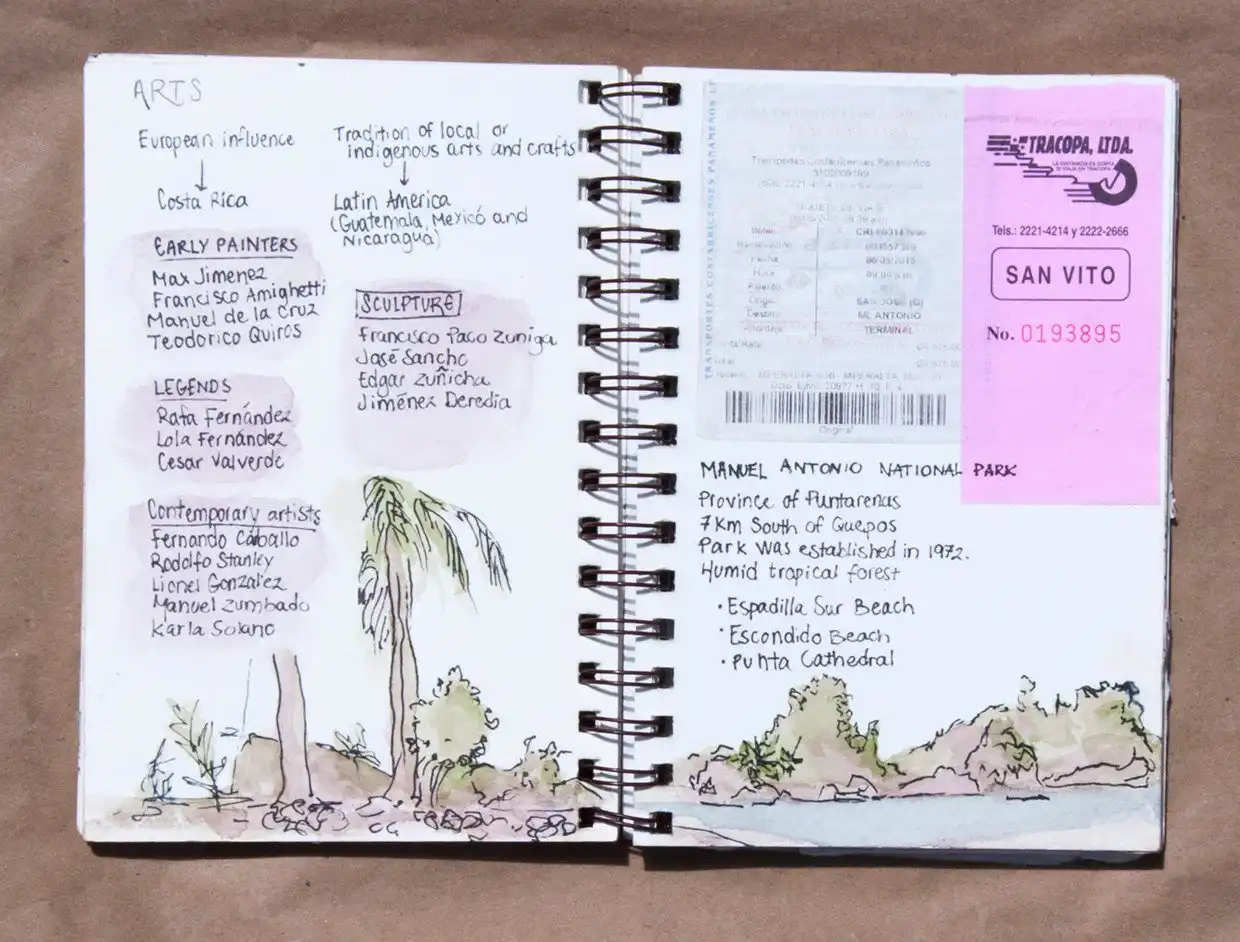 ARTS
European influence
Costa Rica
Tradition of local or
indigenous arts and crafts
Latin America
(Guatemala, Mexicó and
Nicaragua)
EARLY PAINTERS
Max Jimenez
Francisco Amighetti
Manuel de la Cruz
Teodorico Quiros
LEGENDS
Rafa Fernández
Lola Fernández
Cesar Valverde
Contemporary artists
Fernando Carballo
Rodolfo Stanley
Lionel González
Manuel Zumbado
Karla Solano
SCULPTURE
Francisco Paco Zuniga
José Sancho
Edgar Zuñicha
Jiménez Deredia
TRANSPORTES COSTARRICENSES PANAMEÑOS LT
Transportes Costarricenses Panameños
TIQUETE DE VIAJE
Fecha 06/05/2015
Hora
Asiento
SAN JOSE
Destino ML ANTONIO
TERMINAL
Original
TRACOPA, LTDA.
LA DISTANCIA ES CORTA
SI VIAJA EN TRACOPA
Tels.: 2221-4214 y 2222-2666
SAN VITO
No. 0193895
MANUEL ANTONIO NATIONAL PARK
Province of Puntarenas
7km South of Quepos
Park was established in 1972.
Humid tropical forest
• Espadilla Sur Beach
• Escondido Beach
• Punta Cathedral